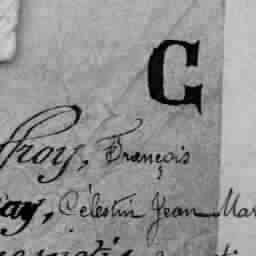 C
ffroy, François
ay, Célestin Jean Mar